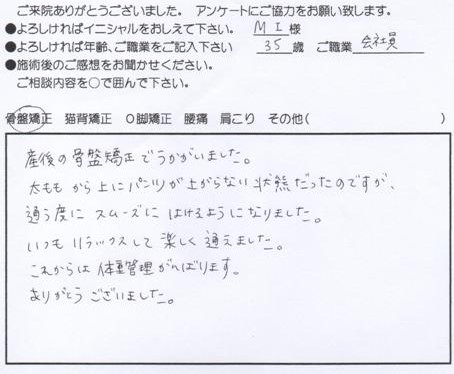 ご来院ありがとうございました。 アンケートにご協力をお願い致します。
●よろしければイニシャルをおしえて下さい。 M I 様
●よろしければ年齢、ご職業をご記入下さい 35 歳 ご職業 会社員
●施術後のご感想をお聞かせください。
ご相談内容を○で囲んで下さい。
骨盤矯正 猫背矯正 O脚矯正 腰痛 肩こり その他( )
産後の骨盤矯正でうかがいました。
太ももから上にパンツが上がらない状態だったのですが、
通う度にスムーズにはけるようになりました。
いつもリラックスして楽しく通えました。
これからは体重管理がんばります。
ありがとうございました。